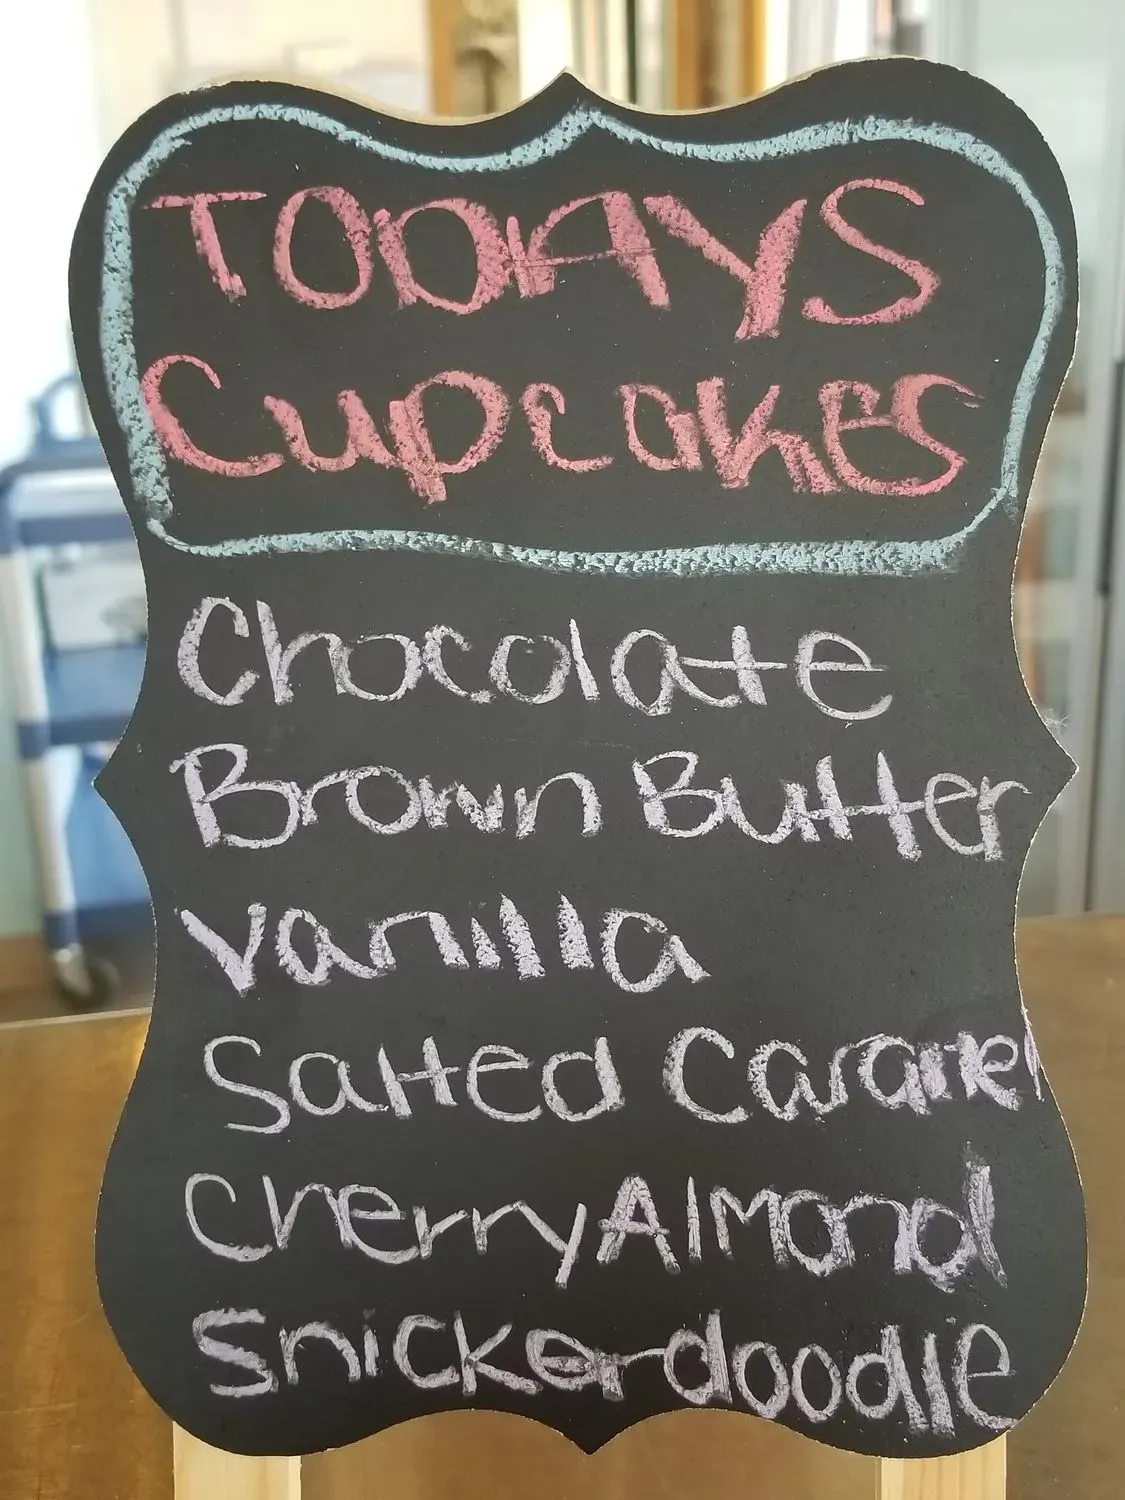 TODAYS
Cupcakes
Chocolate
Brown Butter
Vanilla
Salted Caramel
Cherry Almond
Snickerdoodle